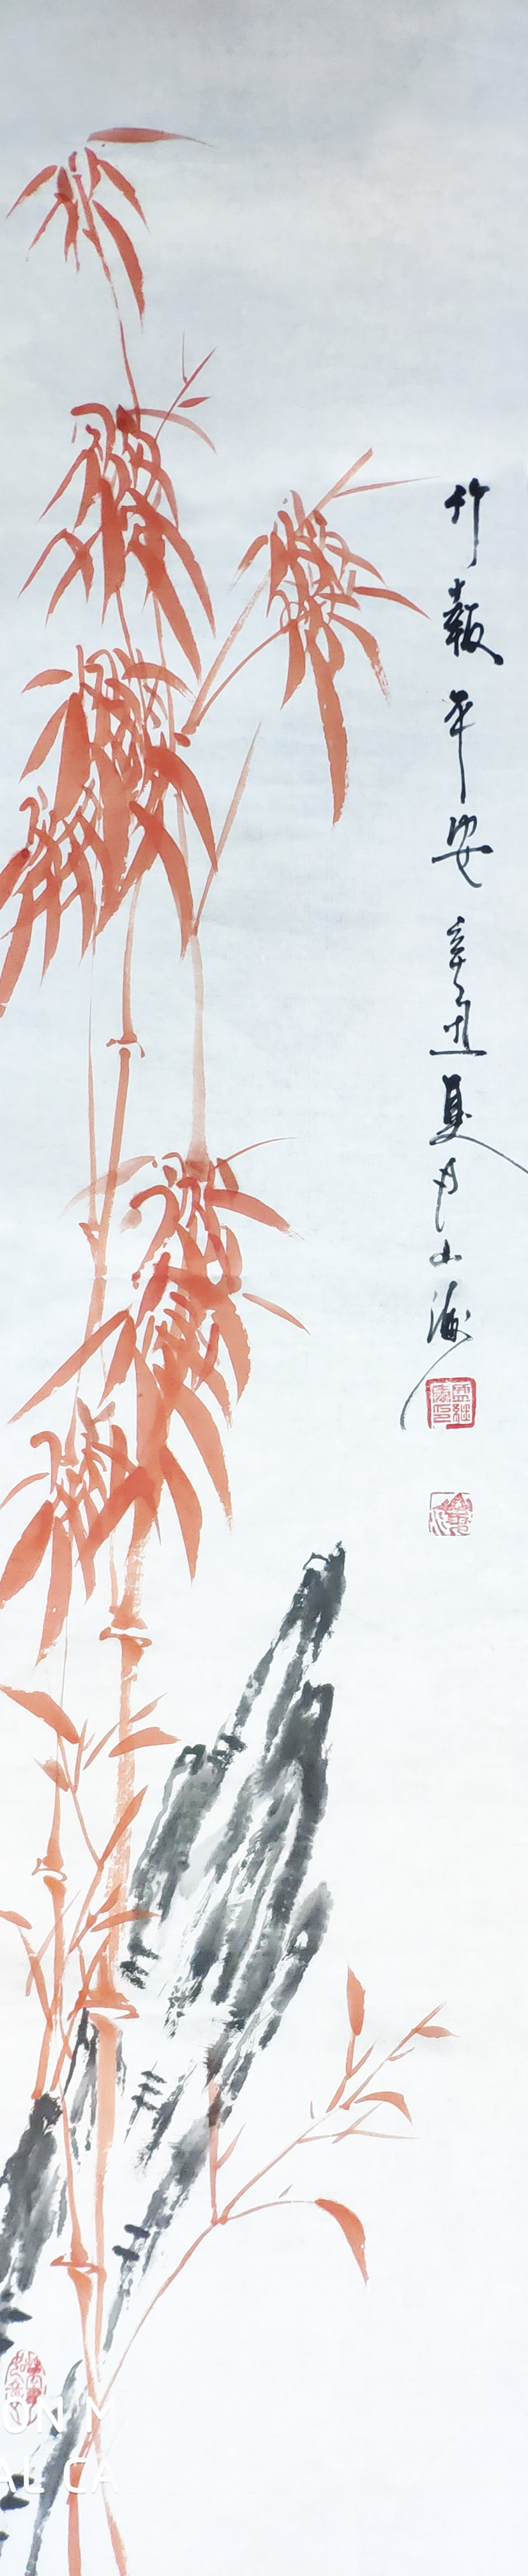 竹報平安 辛丑夏月山海
ON M
AL CA